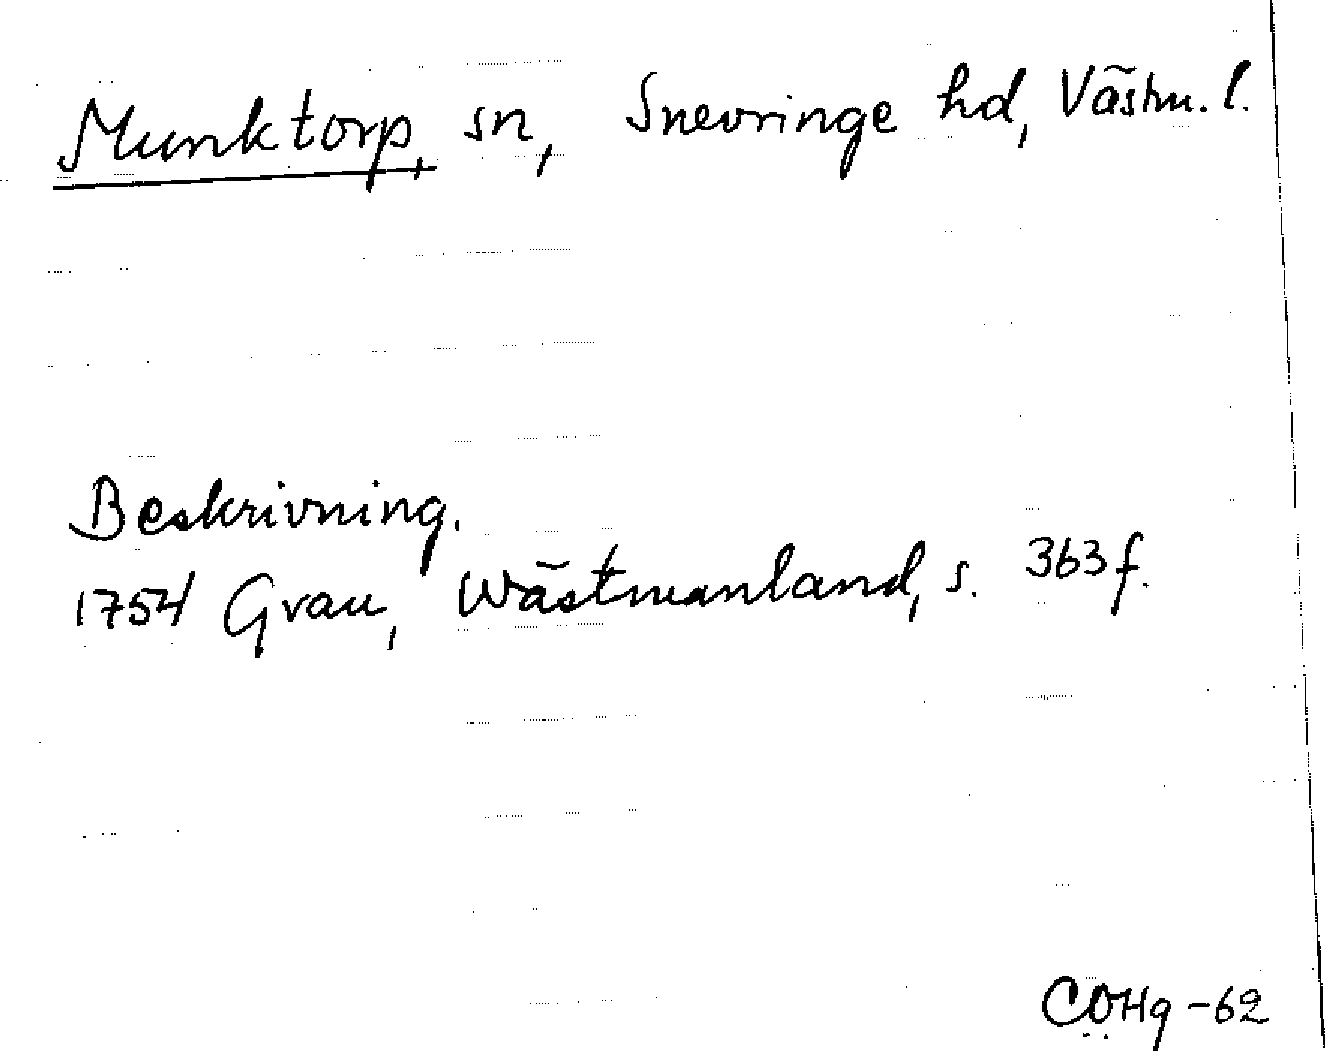 Munktorp, sn, Snevringe hd, Västm. l.
Beskrivning.
1754 Grau, Wästmanland, s. 363 f.
COHg -62